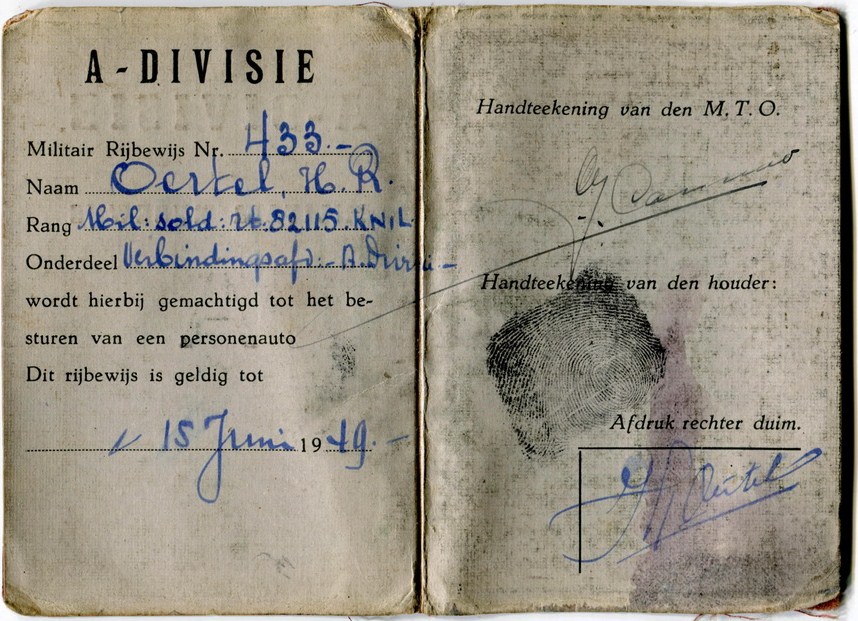 A-DIVISIE
Militair Rijbewijs Nr. 433.-
Naam Oertel, H. R.
Rang Mil: sold: 82115. KNIL.
Onderdeel Verbindingsafd. - A. Divisie -
wordt hierbij gemachtigd tot het be-
sturen van een personenauto
Dit rijbewijs is geldig tot
15 Juni 1949. -
Handteekening van den M.T.O.
Handteekening van den houder:
Afdruk rechter duim.
Oertel